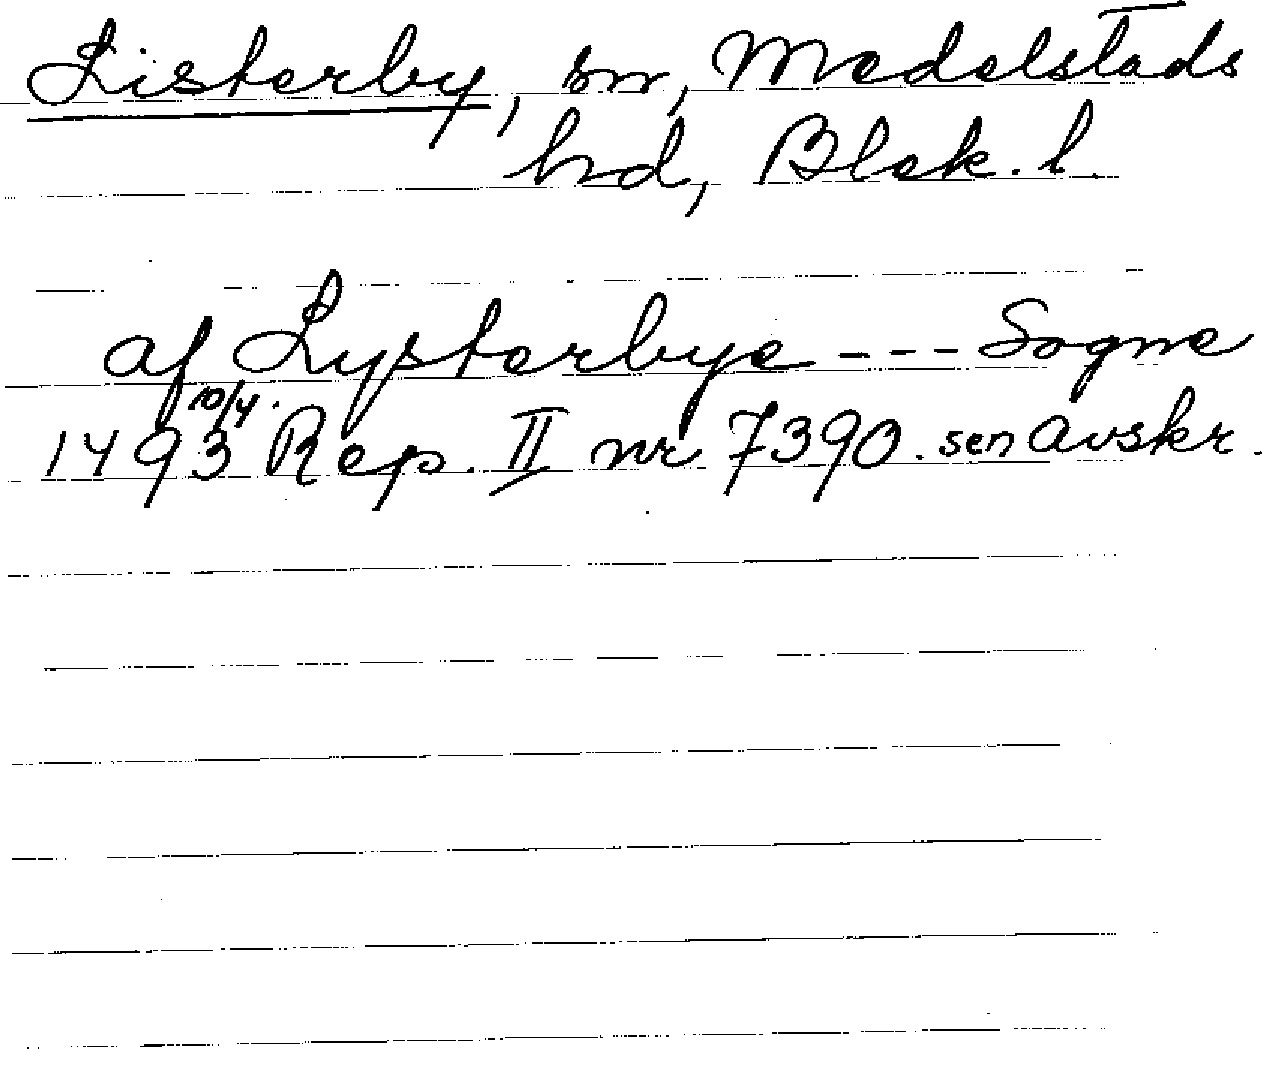 Listerby, sn, Medelstads
hd, Blek. l.
af Lysterbye - - - Sogne
1493 10/4. Rep. II nr 7390. sen avskr.